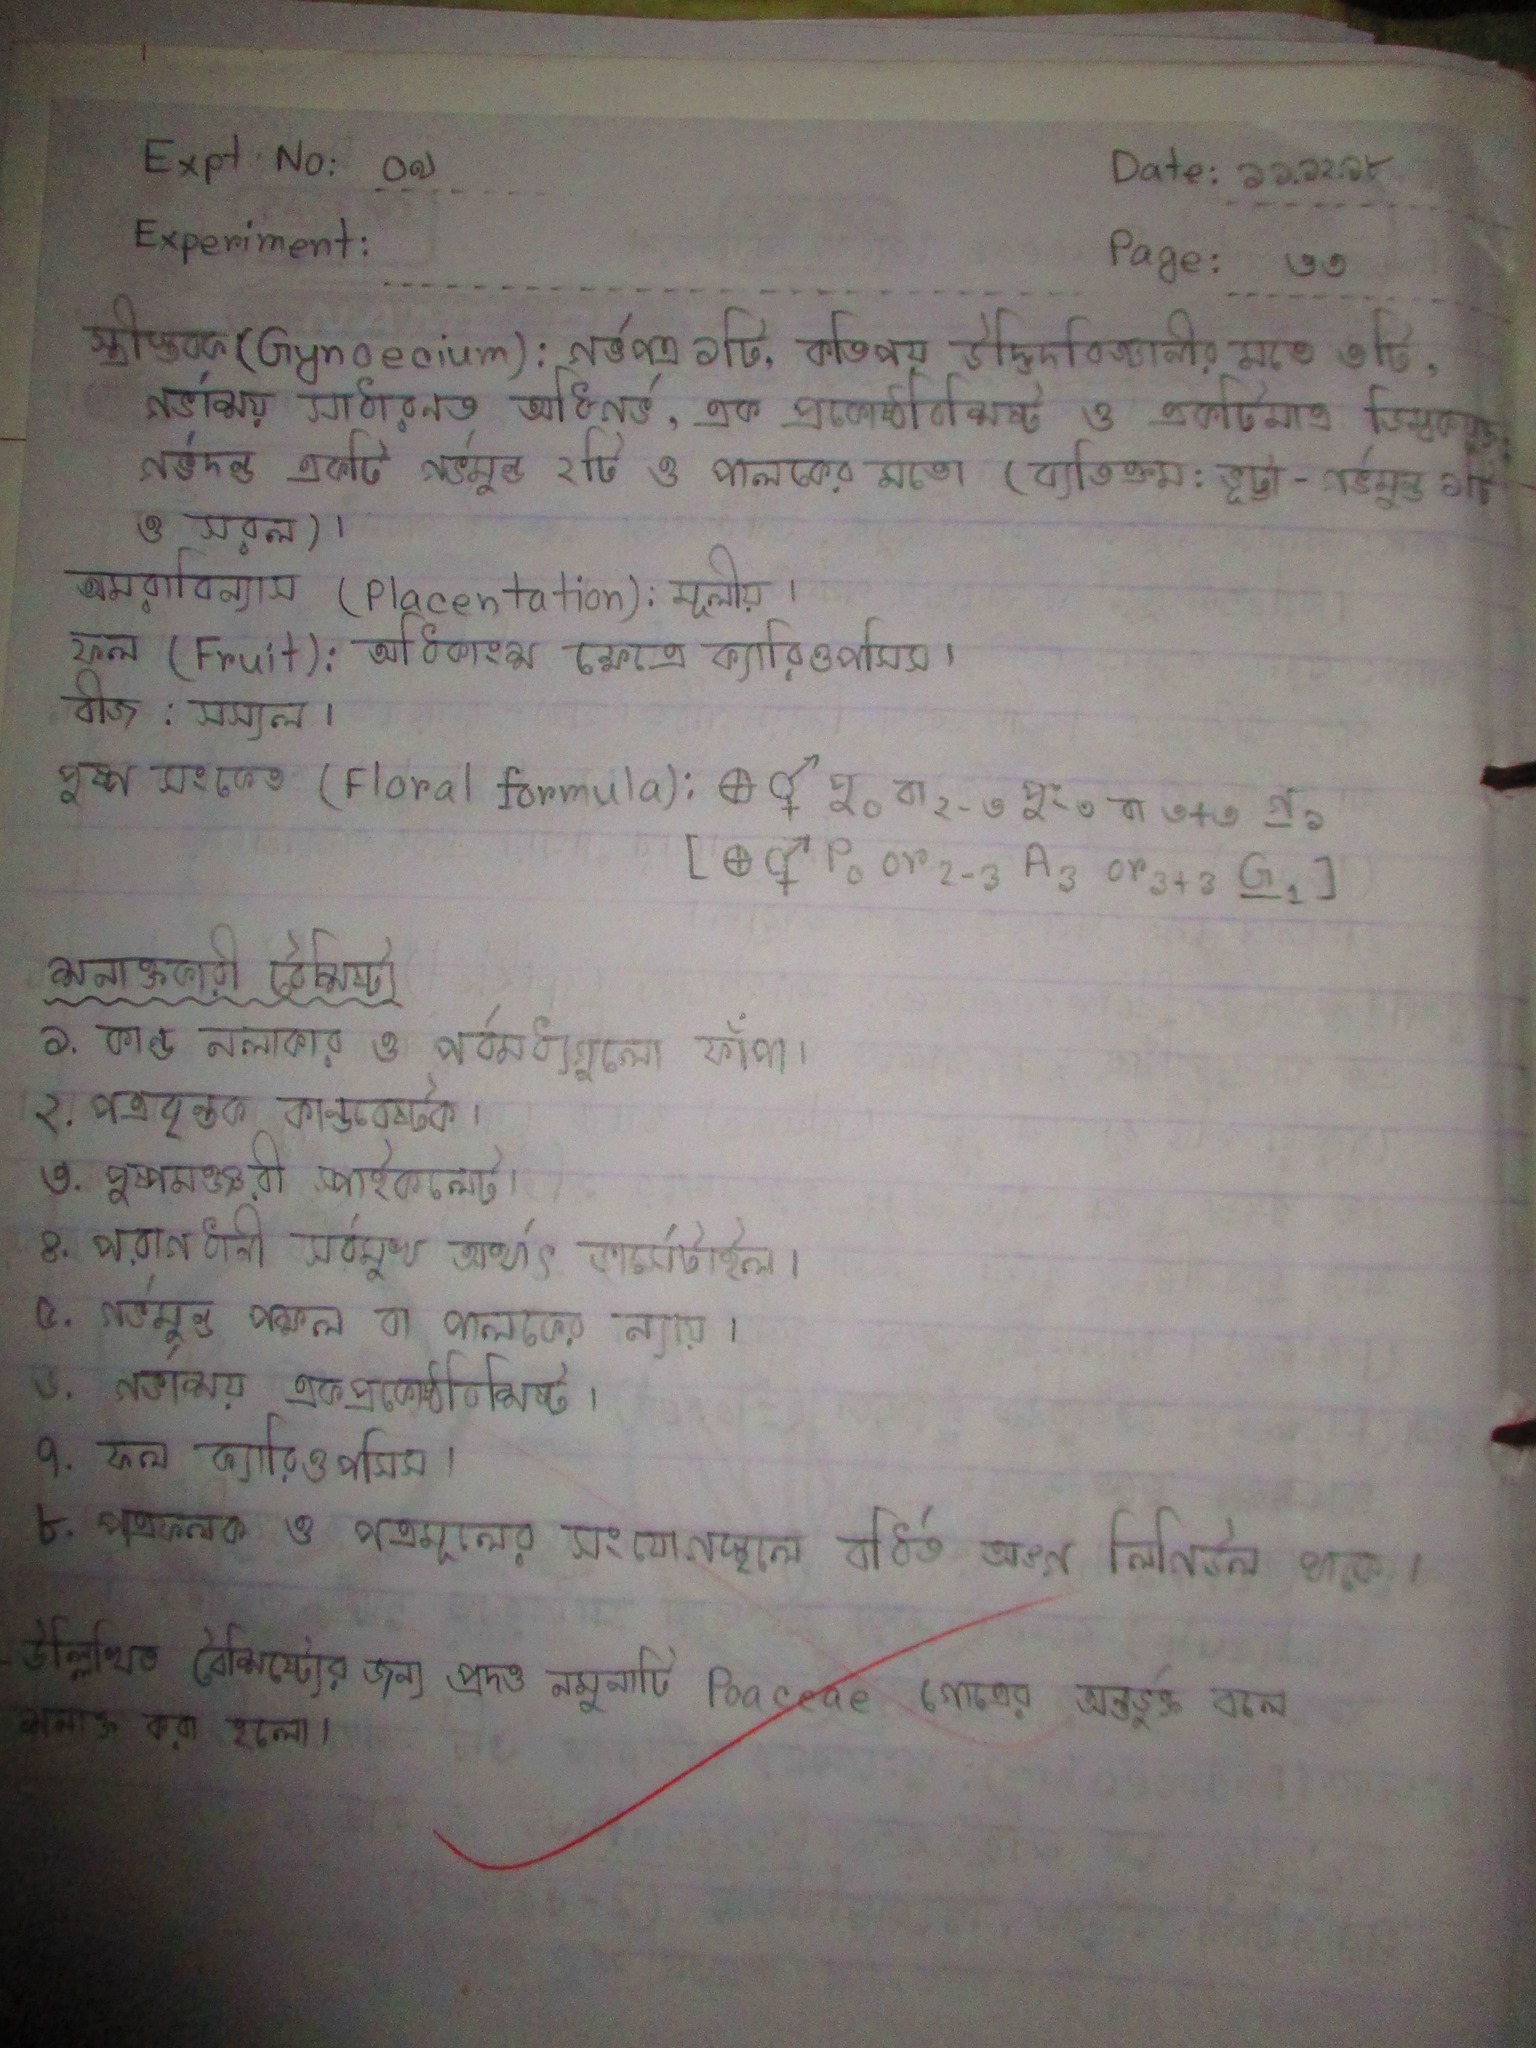 Expt No: ০৭
Date: ১১.১২.১৮
Experiment:
Page: ৩৩
স্ত্রীস্তবক (Gynoecium): গর্ভপত্র ১টি, কতিপয় উদ্ভিদবিজ্ঞানীর মতে ৩টি,
গর্ভাশয় সাধারনত অধিগর্ভ, এক প্রকোষ্ঠবিশিষ্ট ও একটিমাত্র ডিম্বকযুক্ত,
গর্ভদন্ড একটি গর্ভমুন্ড ২টি ও পালকের মতো (ব্যতিক্রম: ভূট্টা - গর্ভমুন্ড ১টি
ও সরল)।
অমরাবিন্যাস (Placentation): মূলীয়।
ফল (Fruit): অধিকাংশ ক্ষেত্রে ক্যারিওপসিস।
বীজ : সস্যল।
পুষ্প সংকেত (Floral formula): ⊕ ⚥ পু₀ বা ₂₋৩ পুং৩ বা ৩+৩ গ̲১
[⊕ ⚥ P₀ or ₂₋₃ A₃ or ₃₊₃ G̲₁]
শনাক্তকারী বৈশিষ্ট্য
১. কান্ড নলাকার ও পর্বমধ্যগুলো ফাঁপা।
২. পত্রবৃন্তক কান্ডবেষ্টক।
৩. পুষ্পমঞ্জরী স্পাইকলেট।
৪. পরাগধানী সর্বমুখ অর্থাৎ ভার্সেটাইল।
৫. গর্ভমুন্ড পক্ষল বা পালকের ন্যায়।
৬. গর্ভাশয় একপ্রকোষ্ঠবিশিষ্ট।
৭. ফল ক্যারিওপসিস।
৮. পত্রফলক ও পত্রমূলের সংযোগস্থলে বর্ধিত অংশ লিগিউল থাকে।
উল্লিখিত বৈশিষ্ট্যের জন্য প্রদত্ত নমুনাটি Poaceae গোত্রের অন্তর্ভুক্ত বলে
শনাক্ত করা হলো।